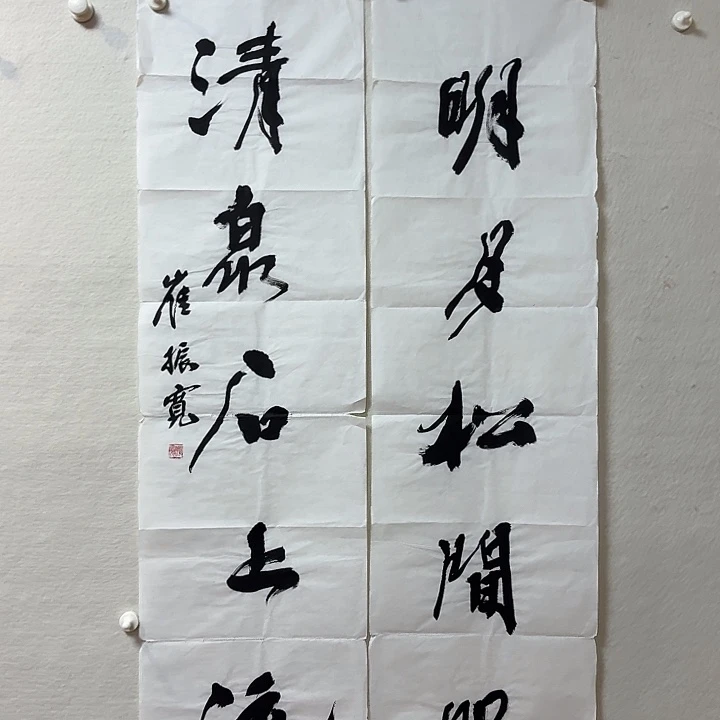 明月松間
清泉石上流
崔振寬